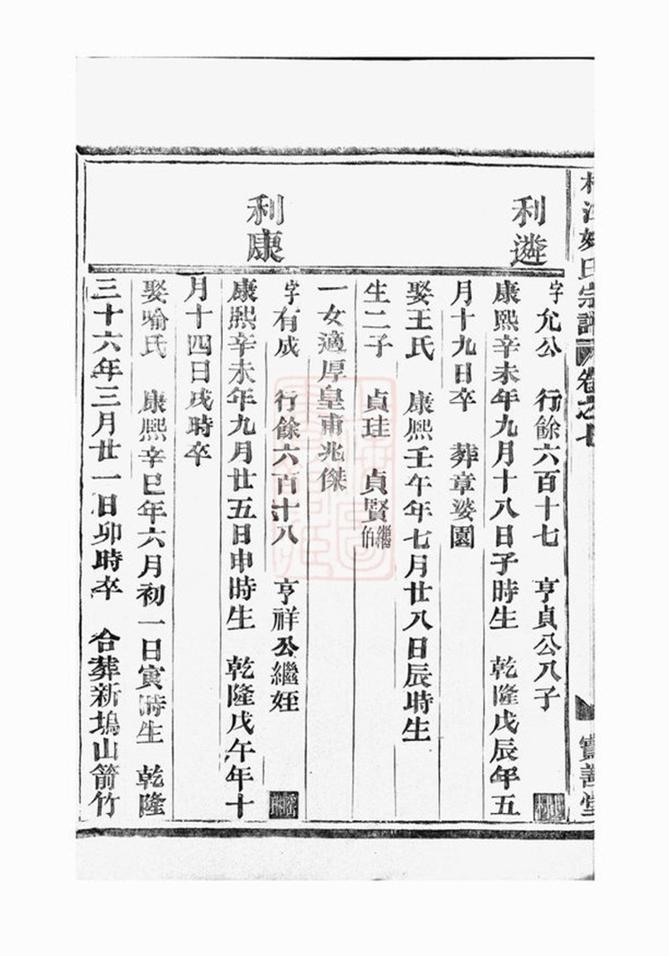 氏宗譜 卷之七
善堂
利遴
字允公 行餘六百十七 亨貞公八子
康熙辛未年九月十八日子時生 乾隆戊辰年五
月十九日卒 葬章婆園
娶王氏 康熙壬午年七月廿八日辰時生
生二子 貞珪 貞賢繼伯
一女適厚皇甫兆傑
利康
字有成 行餘六百十八 亨祥公繼姪
康熙辛未年九月廿五日申時生 乾隆戊午年十
月十四日戌時卒
娶喻氏 康熙辛巳年六月初一日寅時生 乾隆
三十六年三月廿一日卯時卒 合葬新塢山箭竹